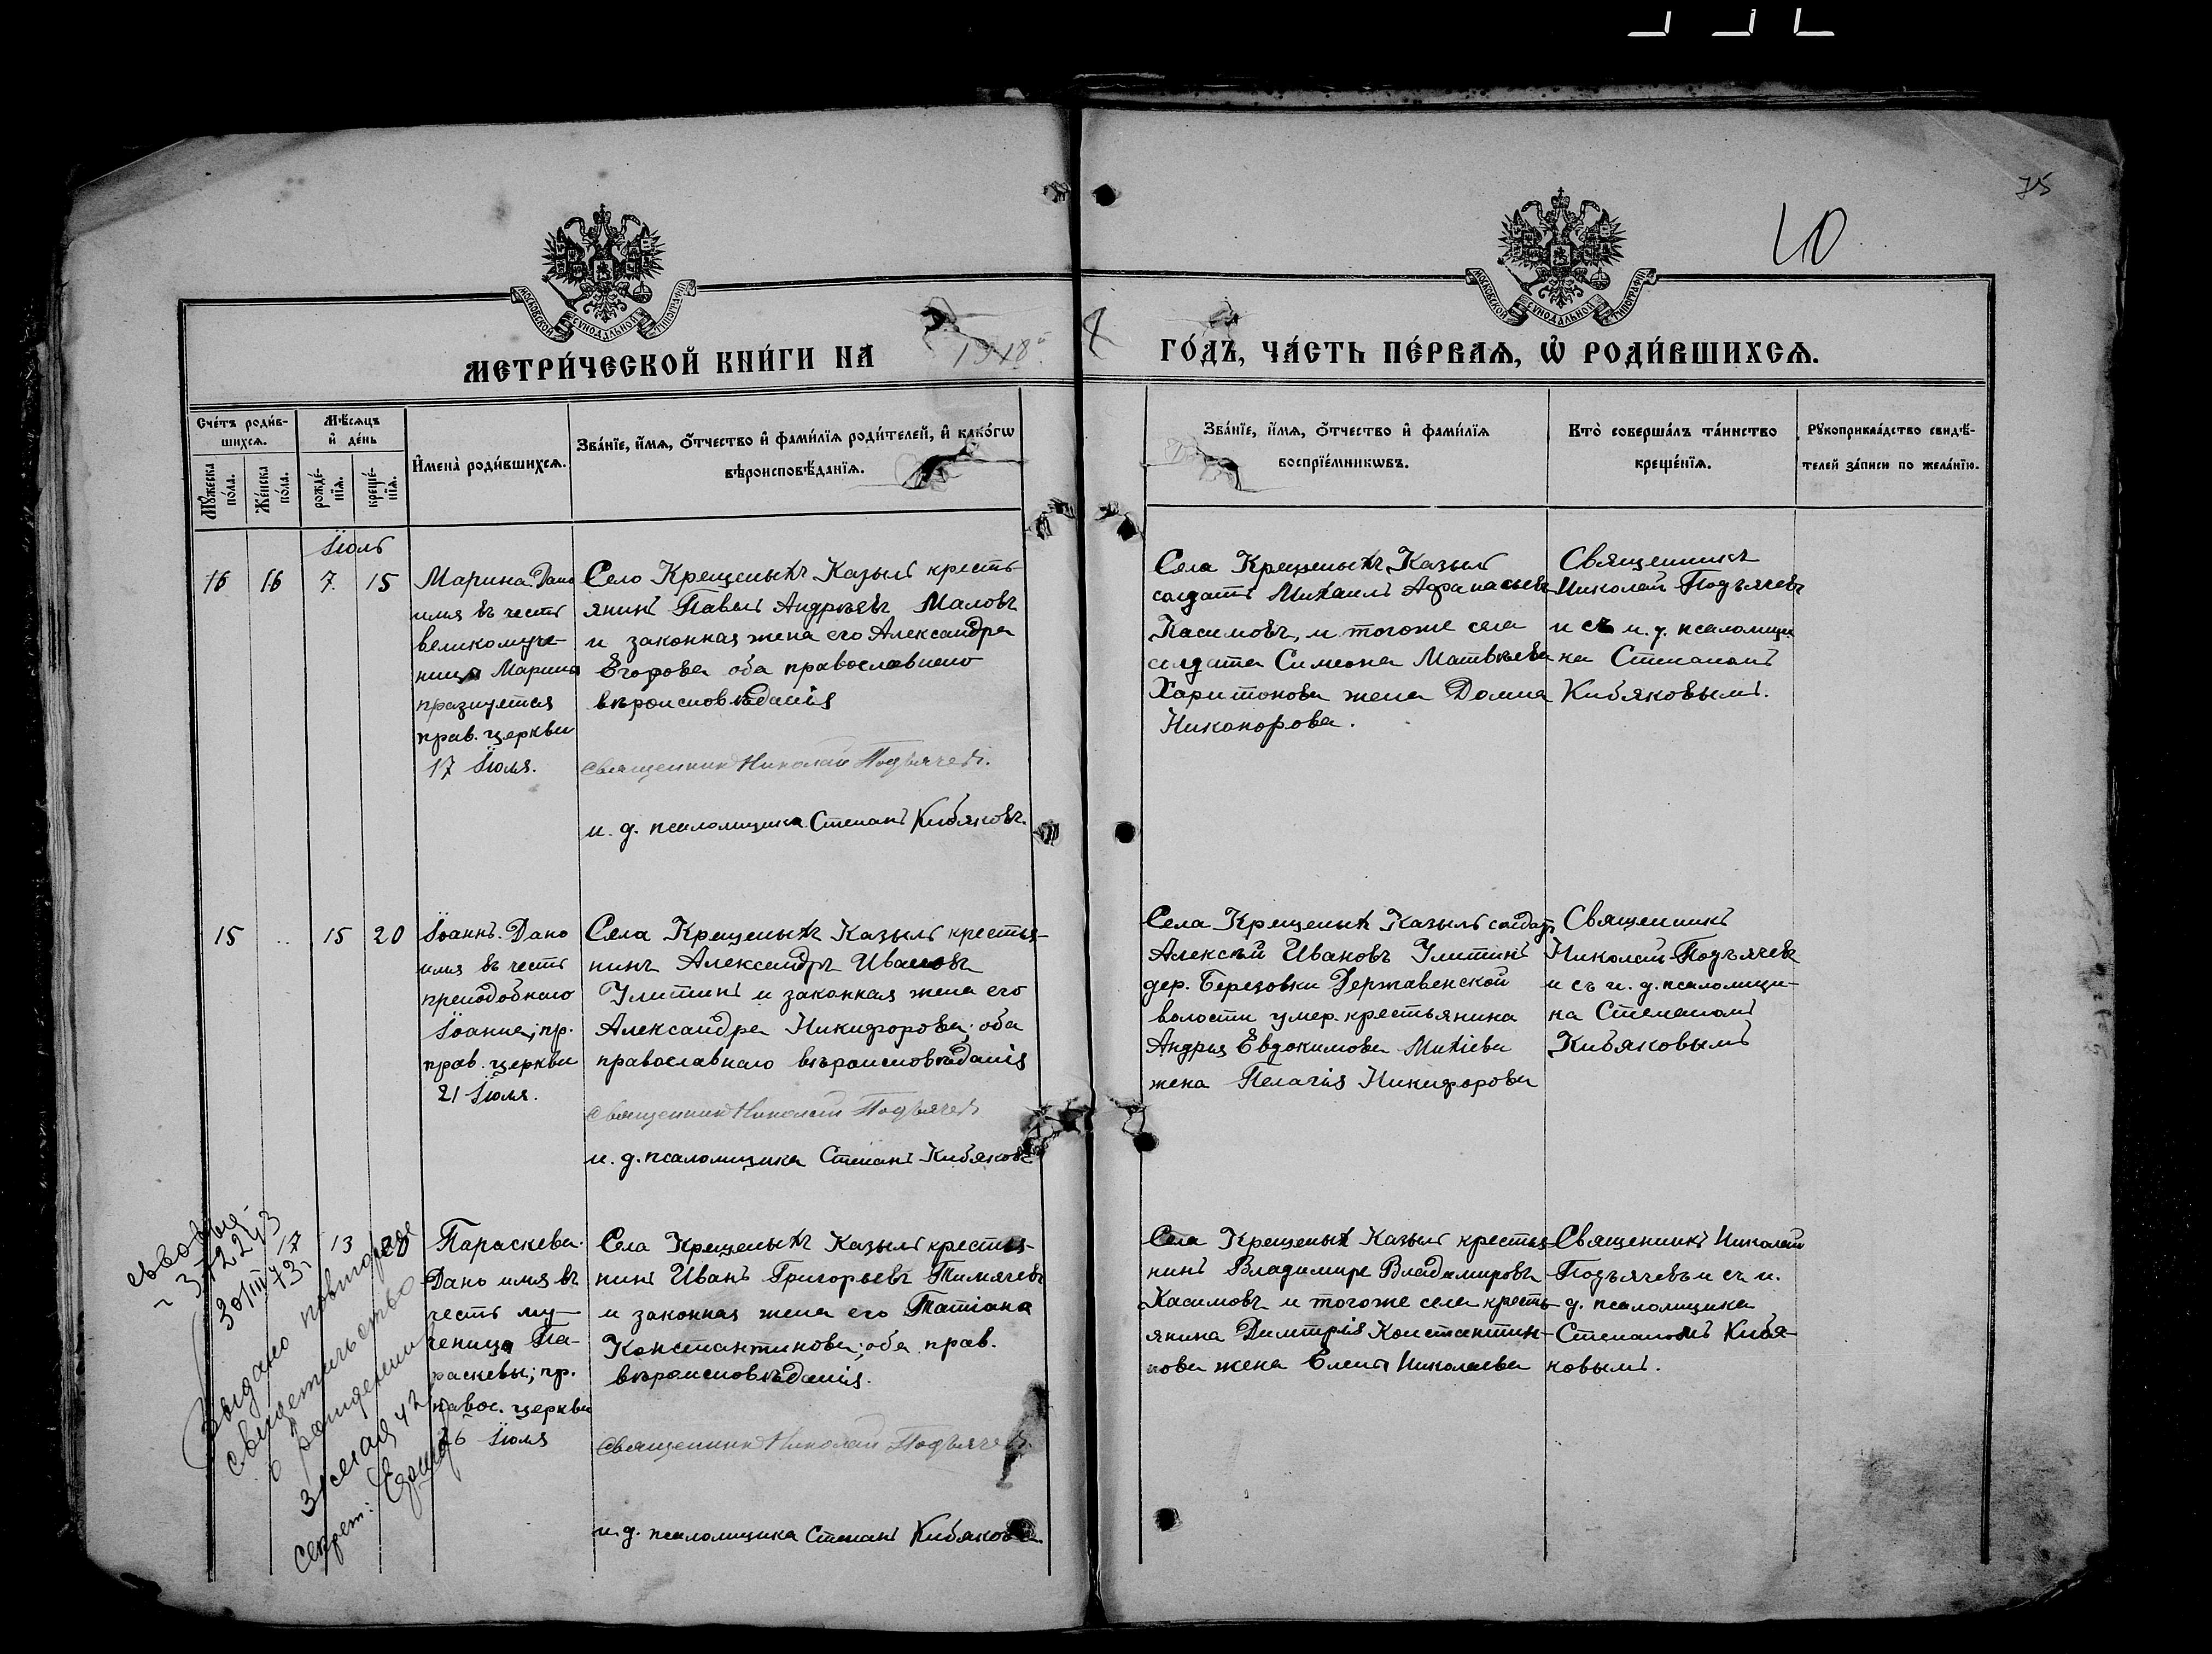 75
10
МОСКОВСКОЙ СѴНОДАЛЬНОЙ ТИПОГРАФІИ
МОСКОВСКОЙ СѴНОДАЛЬНОЙ ТИПОГРАФІИ
МЕТРИ́ЧЕСКОЙ КНИ́ГИ НА 1918 г. ГО́ДЪ, ЧА́СТЬ ПЕ́РВАѦ, Ѡ҆ РОДИ́ВШИХСѦ.
Сче́тъ роди́в-
шихсѧ.
Мꙋ́жеска
по́ла.
Же́нска
по́ла.
Мѣ́сѧцъ
и҆ де́нь
рожде́-
нїѧ.
креще́-
нїѧ.
И҆мена̀ роди́вшихсѧ.
Зва́нїе, и҆́мѧ, ѻ҆́тчество и҆ фами́лїѧ роди́телей, и҆ како́гѡ
вѣроисповѣ́данїѧ.
Зва́нїе, и҆́мѧ, ѻ҆́тчество и҆ фами́лїѧ
воспрїе́мникѡвъ.
Кто̀ соверша́лъ та́инство
креще́нїѧ.
Рꙋкоприкла́дство свидѣ́-
телей за́писи по жела́нїю.
Іюль
16 16 7 15
Марина. Дано
имя въ честь
великомуче-
ницы Марины
празнуется
прав. церкви
17 Іюля.
Село Крещеныхъ Казыль кресть-
янинъ Павелъ Андреевъ Маловъ
и законная жена его Александра
Егорова оба православнаго
вѣроисповѣданія
Священникъ Николай Подъячевъ.
и. д. псаломщика Степанъ Кибяковъ.
Села Крещеныхъ Казыль
солдатъ Михаилъ Афанасьевъ
Касимовъ, и тогоже села
солдата Симеона Матвѣева
Харитонова жена Домна
Никонорова.
Священникъ
Николай Подъячевъ
и съ и. д. псаломщи
ка Степаномъ
Кибяковымъ.
15 .. 15 20
Іоаннъ. Дано
имя въ честь
преподобнаго
Іоанна; пр.
прав. церкви
21 Іюля.
Села Крещеныхъ Казыль крестья-
нинъ Александръ Ивановъ
Улитинъ и законная жена его
Александра Никифорова; оба
православнаго вѣроисповѣданія
Священникъ Николай Подъячевъ
и. д. псаломщика Степанъ Кибяковъ
Села Крещеныхъ Казыль солдатъ
Алексѣй Ивановъ Улитинъ
дер. Березовки Державенской
волости умер. крестьянина
Андрея Евдокимова Михіева
жена Пелагія Никифорова
Священникъ
Николай Подъячевъ
и съ и. д. псаломщи-
ка Степаномъ
Кибяковымъ
17 13 20
Параскева.
Дано имя въ
честь му-
ченицы Па-
раскевы; пр.
павос. церкви
26 Іюля
Села Крещеныхъ Казыль крестья-
нинъ Иванъ Григорьевъ Тимячевъ
и законная жена его Татіана
Константинова; оба прав.
вѣроисповѣданія.
Священникъ Николай Подъячевъ.
и. д. псаломщика Степанъ Кибяковъ.
Села Крещеныхъ Казыль крестья
нинъ Владимиръ Владимировъ
Касимовъ и тогоже села кресть-
янина Димитрія Константин-
нова жена Елена Николаева
Священникъ Николай
Подъячевъ и съ и.
д. псаломщика
Степаномъ Кибя-
ковымъ.
30/III 73г
Выдано повторное
свидетельство
о рождении
Секрет: